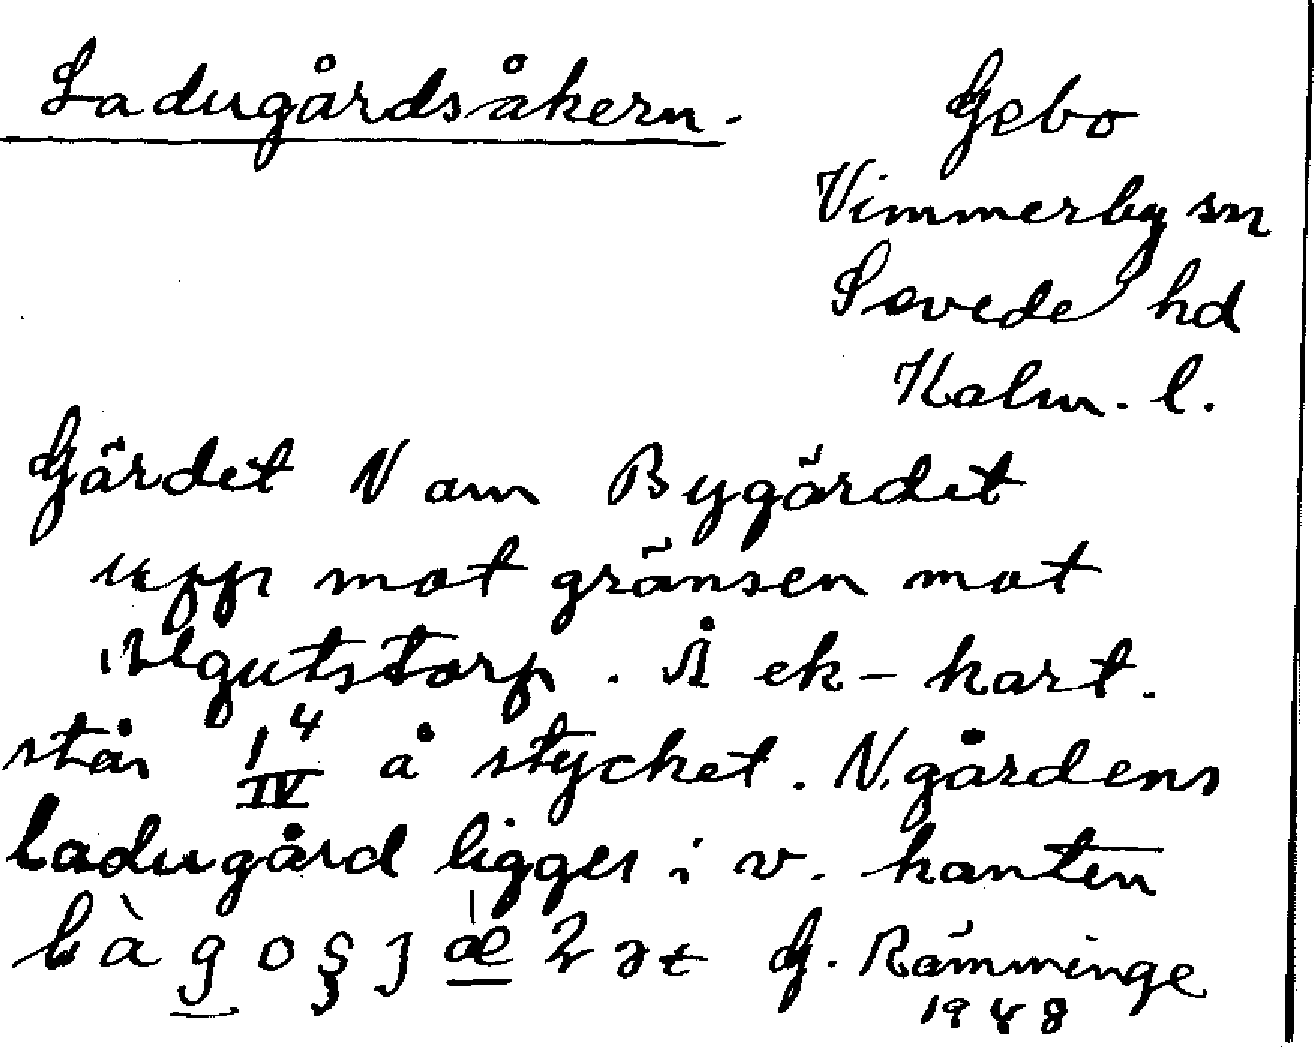 Ladugårdsåkern.
Gebo
Vimmerby sn
Sevede hd
Kalm. l.
Gärdet N om Bygärdet
upp mot gränsen mot
Algutstorp. Å ek-kart.
står 1 4 IV å stycket. N. gårdens
ladugård ligger i v. kanten
G. Rämminge
1948